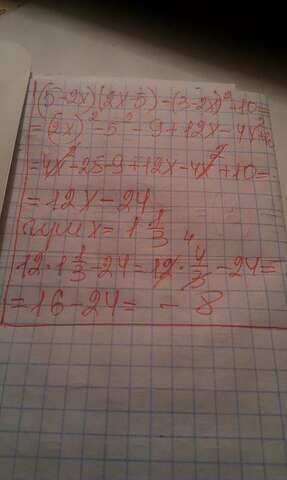 (5+2x)(2x-5)-(3-2x)²+10=
=(2x)²-5²-9+12x-4x²+10
=4x²-25-9+12x-4x²+10=
=12x-24
при x= 1 1/3
4
12·1 1/3-24=12·4/3-24=
=16-24= -8